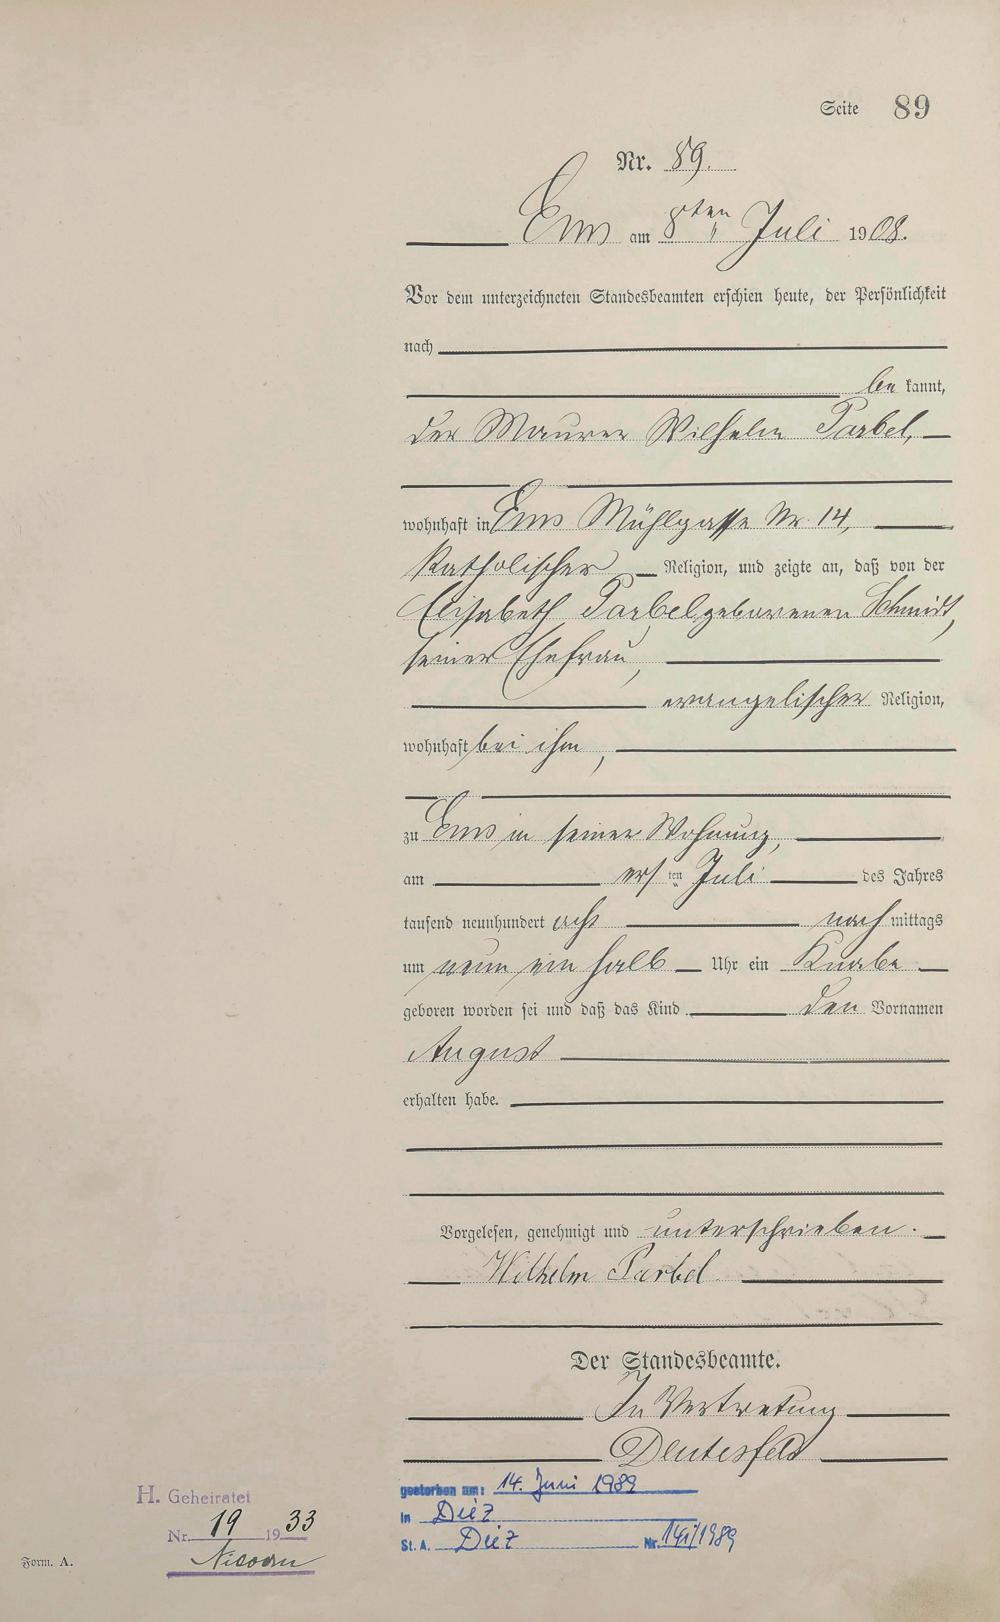 Seite 89
Nr. 89.
Ems am 8ten Juli 1908.
Vor dem unterzeichneten Standesbeamten erschien heute, der Persönlichkeit
nach
bekannt,
der Maurer Wilhelm Parbel,
wohnhaft in Ems Mühlgasse Nr. 14,
katholischer Religion, und zeigte an, daß von der
Elisabeth Parbel, geborenen Schmidt,
seiner Ehefrau,
evangelischer Religion,
wohnhaft bei ihm,
zu Ems in seiner Wohnung,
am ersten Juli des Jahres
tausend neunhundert acht nachmittags
um neun ein halb Uhr ein Knabe
geboren worden sei und daß das Kind den Vornamen
August
erhalten habe.
Vorgelesen, genehmigt und unterschrieben.
Wilhelm Parbel
Der Standesbeamte.
In Vertretung
gestorben am: 14. Juni 1989
in Diez
St. A. Diez Nr. 141/1989
H. Geheiratet
Nr. 19 1933
Form. A.